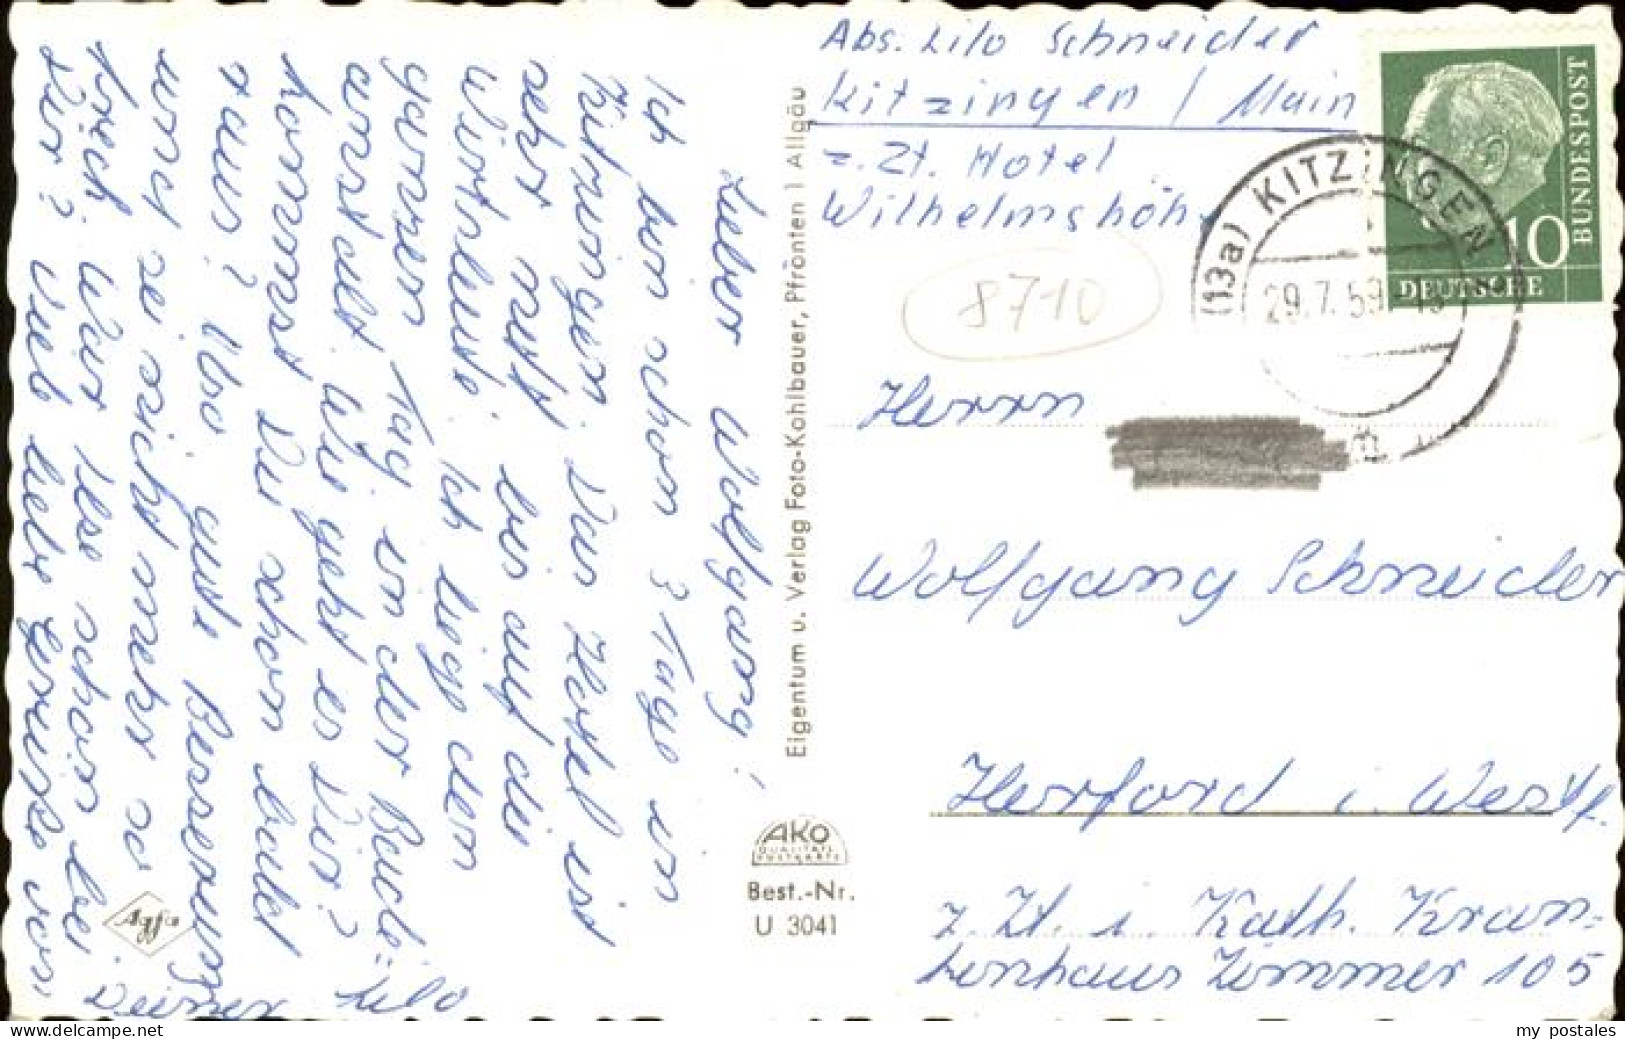 Lieber Wolfgang!
Ich bin schon 3 Tage in
Kitzingen. Das Hotel ist
sehr nett bis auf die
Wirtsleute. Ich liege den
ganzen Tag in der Bade-
anstalt. Wie geht es Dir?
Kommst Du schon bald
raus? Also gute Besserung
und sei nicht mehr so
frech. War Ilse schon bei
Dir? Viele liebe Grüsse von
Deiner Lilo
Eigentum u. Verlag Foto-Kohlbauer, Pfronten i Allgäu
AKO
QUALITÄTS
POSTKARTE
Best.-Nr.
U 3041
Agfa
Abs. Lilo Schneider
Kitzingen / Main
z. Zt. Hotel
Wilhelmshöhe
8710
(13a) KITZINGEN
29.7.59
10
DEUTSCHE
BUNDESPOST
Herrn
Wolfgang Schneider
Herford i. Westf.
z. Zt. i. Kath. Kran-
kenhaus Zimmer 105
my postales